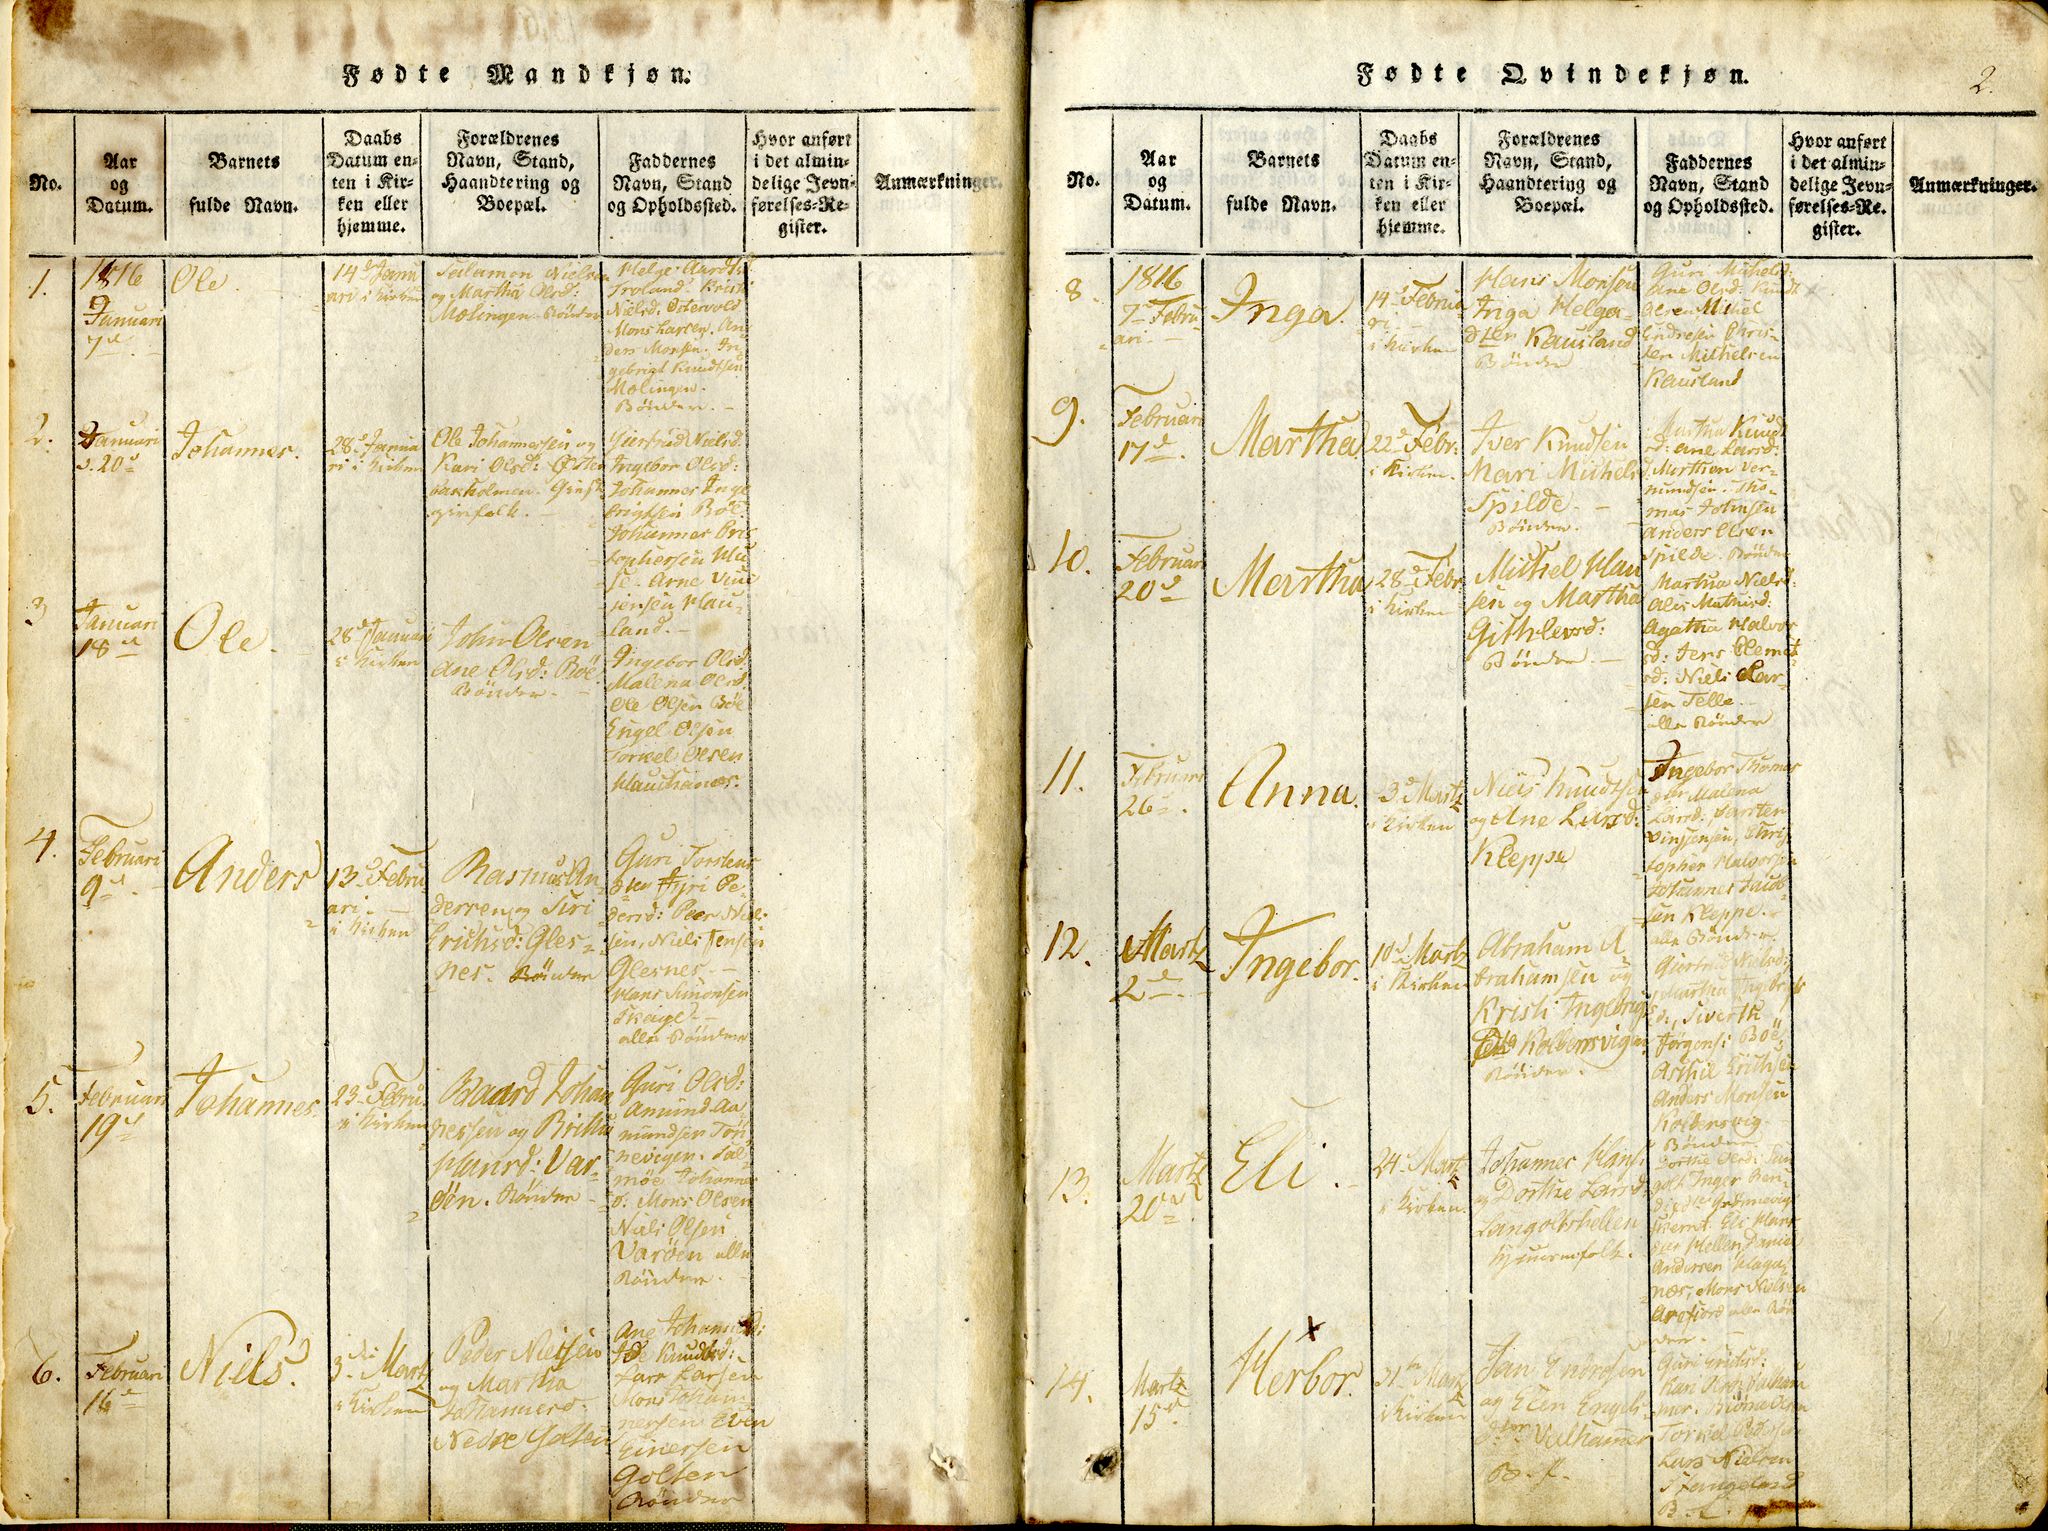 Fødte Mandkjøn.
No.
Aar
og
Datum.
Barnets
fulde Navn.
Daabs
Datum en-
ten i Kir-
ken eller
hjemme.
Forældrenes
Navn, Stand,
Haandtering og
Boepæl.
Faddernes
Navn, Stand
og Opholdssted.
Hvor anført
i det almin-
delige Jevn-
førelses-Re-
gister.
Anmærkninger.
1.
1816
Januari
7d
Ole
14d Janu
ari i Kirken
Salamon Nielsen
og Martha Olsd:
Mælingen Bönder
Helge
Troland. Kristi
Nielsd. Østervold
Mons Larsen, An-
ders Monsen. In
gebrigt Knudtsen
Mælingen.
Bönder.
2.
Januari
d. 20d
Johannes.
28d Janua
ri i Kirken
Ole Johannessen og
Kari Olsd:
Giertrud Nielsd:
Ingebor Olsd:
Johannes Inge
brigtsen Böe
Johannes Cris
tophersen
Arne
land.
3
Januari
18d
Ole.
28d Januari
i Kirken
John Olsen
Ane Olsd: Böe
Bönder.
Ingebor Olsd.
Malena Olsd.
Ole Olsen Böe
Engel Olsen
Torkel Olsen
4.
Februari
9d
Anders
13d Febru
ari.
i Kirken
Rasmus An-
dersen og Siri
Erichsd: Gles-
nes. Bönder
Guri Torstens
Pe-
dersd: Peer Niel
sen, Niels Jensen
Glesnes.
Hans Simonsen
Skage
alle Bönder
5.
Februari
19d
Johannes.
23d Febru.
i Kirken
Baard Johan
nessen og Britha
Hansd: Var-
öen. Bönder
Guri Olsd:
Amund Aa
mundsen Tön
nevigen.
Johannes
Mons Olsen
Niels Olsen
Varöen alle
Bönder.
6.
Februari
16d
Niels.
3d Martz
i Kirken
Peder Nielsen
og Martha
Johannesd:
Nedre Golten
Ane Johannesd:
Knudtsd:
Lars Larsen
Mons Johan
nessen Even
Einersen
Golten
Bönder
Fødte Qvindekjøn.
2.
No.
Aar
og
Datum.
Barnets
fulde Navn.
Daabs
Datum en-
ten i Kir-
ken eller
hjemme.
Forældrenes
Navn, Stand,
Haandtering og
Boepæl.
Faddernes
Navn, Stand
og Opholdssted.
Hvor anført
i det almin-
delige Jevn-
førelses-Re-
gister.
Anmærkninger.
8.
1816
7d Febru
ari.
Inga.
14d Februa
ri
i Kirken
Hans Monsen
Inga Helga-
dter Kausland
Bönder
Guri Michelsd:
Ane Olsd: Knudt
Olsen Michel
Endresen Chris-
ten Michelsen
Kausland
9.
Februari
17d
Martha
22d Febr:
i Kirken.
Iver Knudsen
Mari Michelsd
Spilde.
Bönder.
Martha Knud
sd: Ane Larsd:
Morthen Ver-
mundsen. Tho-
mas Johnsen
Anders Olsen
Spilde. Bönder
10.
Februari
20d
Martha
28d Febr:
i Kirken
Michel Han
sen og Martha
Githlevsd:
Bönder.
Martha Nielsd:
Alis Mathisd:
Agatha Halvor
sd: Jens Clemet
sd: Niels Clar-
sen Telle.
alle Bönder
11.
Februari
26d.
Anna.
3d Martz
i Kirken
Niels Knudtsen
og Ane Larsd:
Kleppe
Ingebor Thomas
dtr Malena
Larsd. Carsten
Vinsensen, Chris
topher Halvorsen
Johannes Jacob
sen Kleppe.
alle Bönder.
12.
Martz
2d
Ingebor.
10d Martz
i Kirken
Abraham A
brahamsen og
Kristi Ingebrigs
Kolbensvigen
Bönder.
Giertrud Nielsd:
Martha Ingebrigts
d:, Siverth
Jörgens: Böe
Erichsen
Anders Monsen
Kolbensvig
Bönder
13.
Martz
20d.
Eli.
24d Martz
i Kirken.
Johannes Hans:
og Dorthe Larsd:
Langoltshellen
Huusmensfolk.
Dorthe Olsd:
Inger
Eli Hans
dtr Hellen Daniel
Andersen
Mons Nielsen
alle Bön
der.
14.
Martz
15d.
x
Herbor.
31te Martz
i Kirken
Jan
og Elen Engels
dtr Vulhamer
B. f.
Guri Erichsd:
Kari
Torkel Peders
Lars Nielsen
Stangeland
B. f.